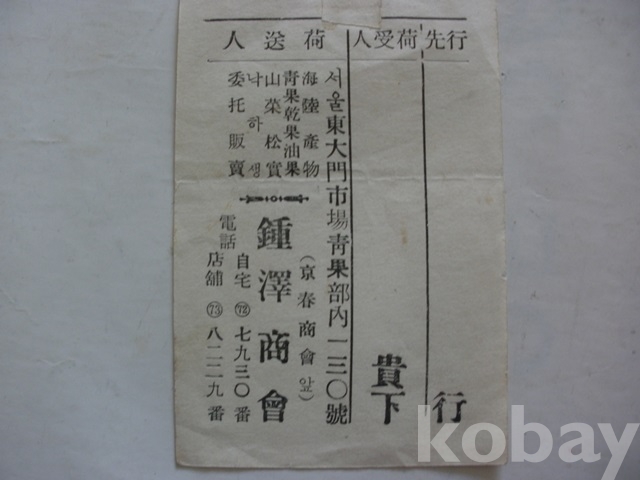 行先
荷受人
荷送人
行
貴下
서울東大門市場靑果部內一三〇號
(京春商會앞)
海陸產物
靑果乾果油果
山菜松實
낙하생
委托販賣
鍾澤商會
電話
自宅 ㊆ 七九三〇番
店舖 ㊆ 八二二九番
kobay